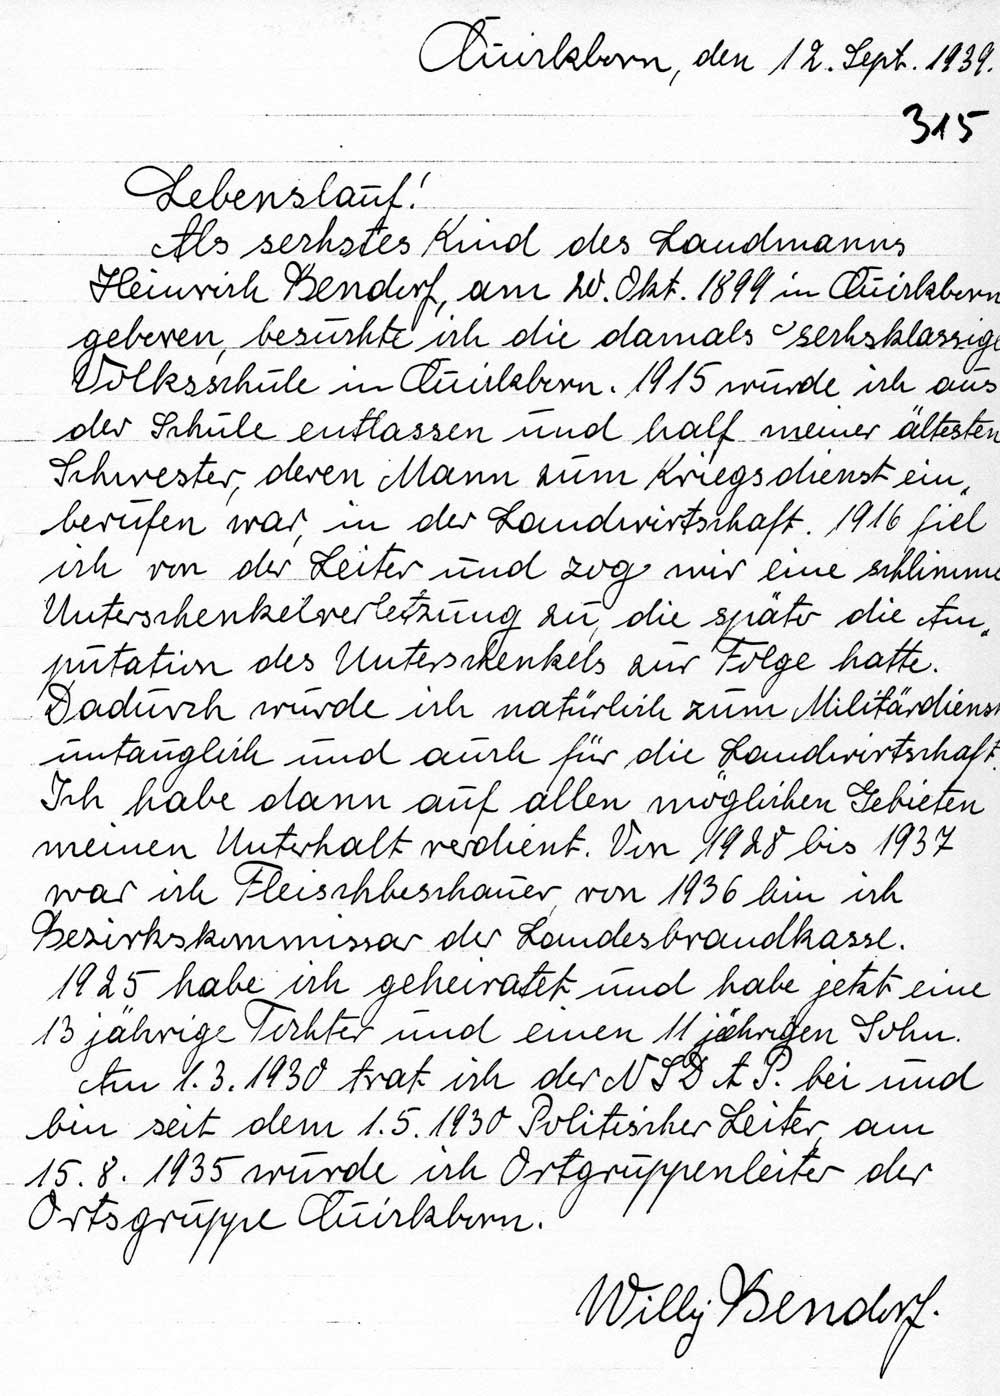 Quickborn, den 12. Sept. 1939.
315
Lebenslauf!
Als sechstes Kind des Landmanns
Heinrich Bendorf, am 20. Okt. 1899 in Quickborn
geboren, besuchte ich die damals sechsklassige
Volksschule in Quickborn. 1915 wurde ich aus
der Schule entlassen und half meiner ältesten
Schwester, deren Mann zum Kriegsdienst ein„
berufen war, in der Landwirtschaft. 1916 fiel
ich von der Leiter und zog mir eine schlimme
Unterschenkelverletzung zu, die später die Am„
putation des Unterschenkels zur Folge hatte.
Dadurch wurde ich natürlich zum Militärdienst
untauglich und auch für die Landwirtschaft.
Ich habe dann auf allen möglichen Gebieten
meinen Unterhalt verdient. Von 1928 bis 1937
war ich Fleischbeschauer, von 1936 bin ich
Bezirkskommissar der Landesbrandkasse.
1925 habe ich geheiratet und habe jetzt eine
13 jährige Tochter und einen 11 jährigen Sohn.
Am 1.3.1930 trat ich der NSDAP. bei und
bin seit dem 1.5.1930 Politischer Leiter, am
15.8.1935 wurde ich Ortgruppenleiter der
Ortsgruppe Quickborn.
Willy Bendorf.